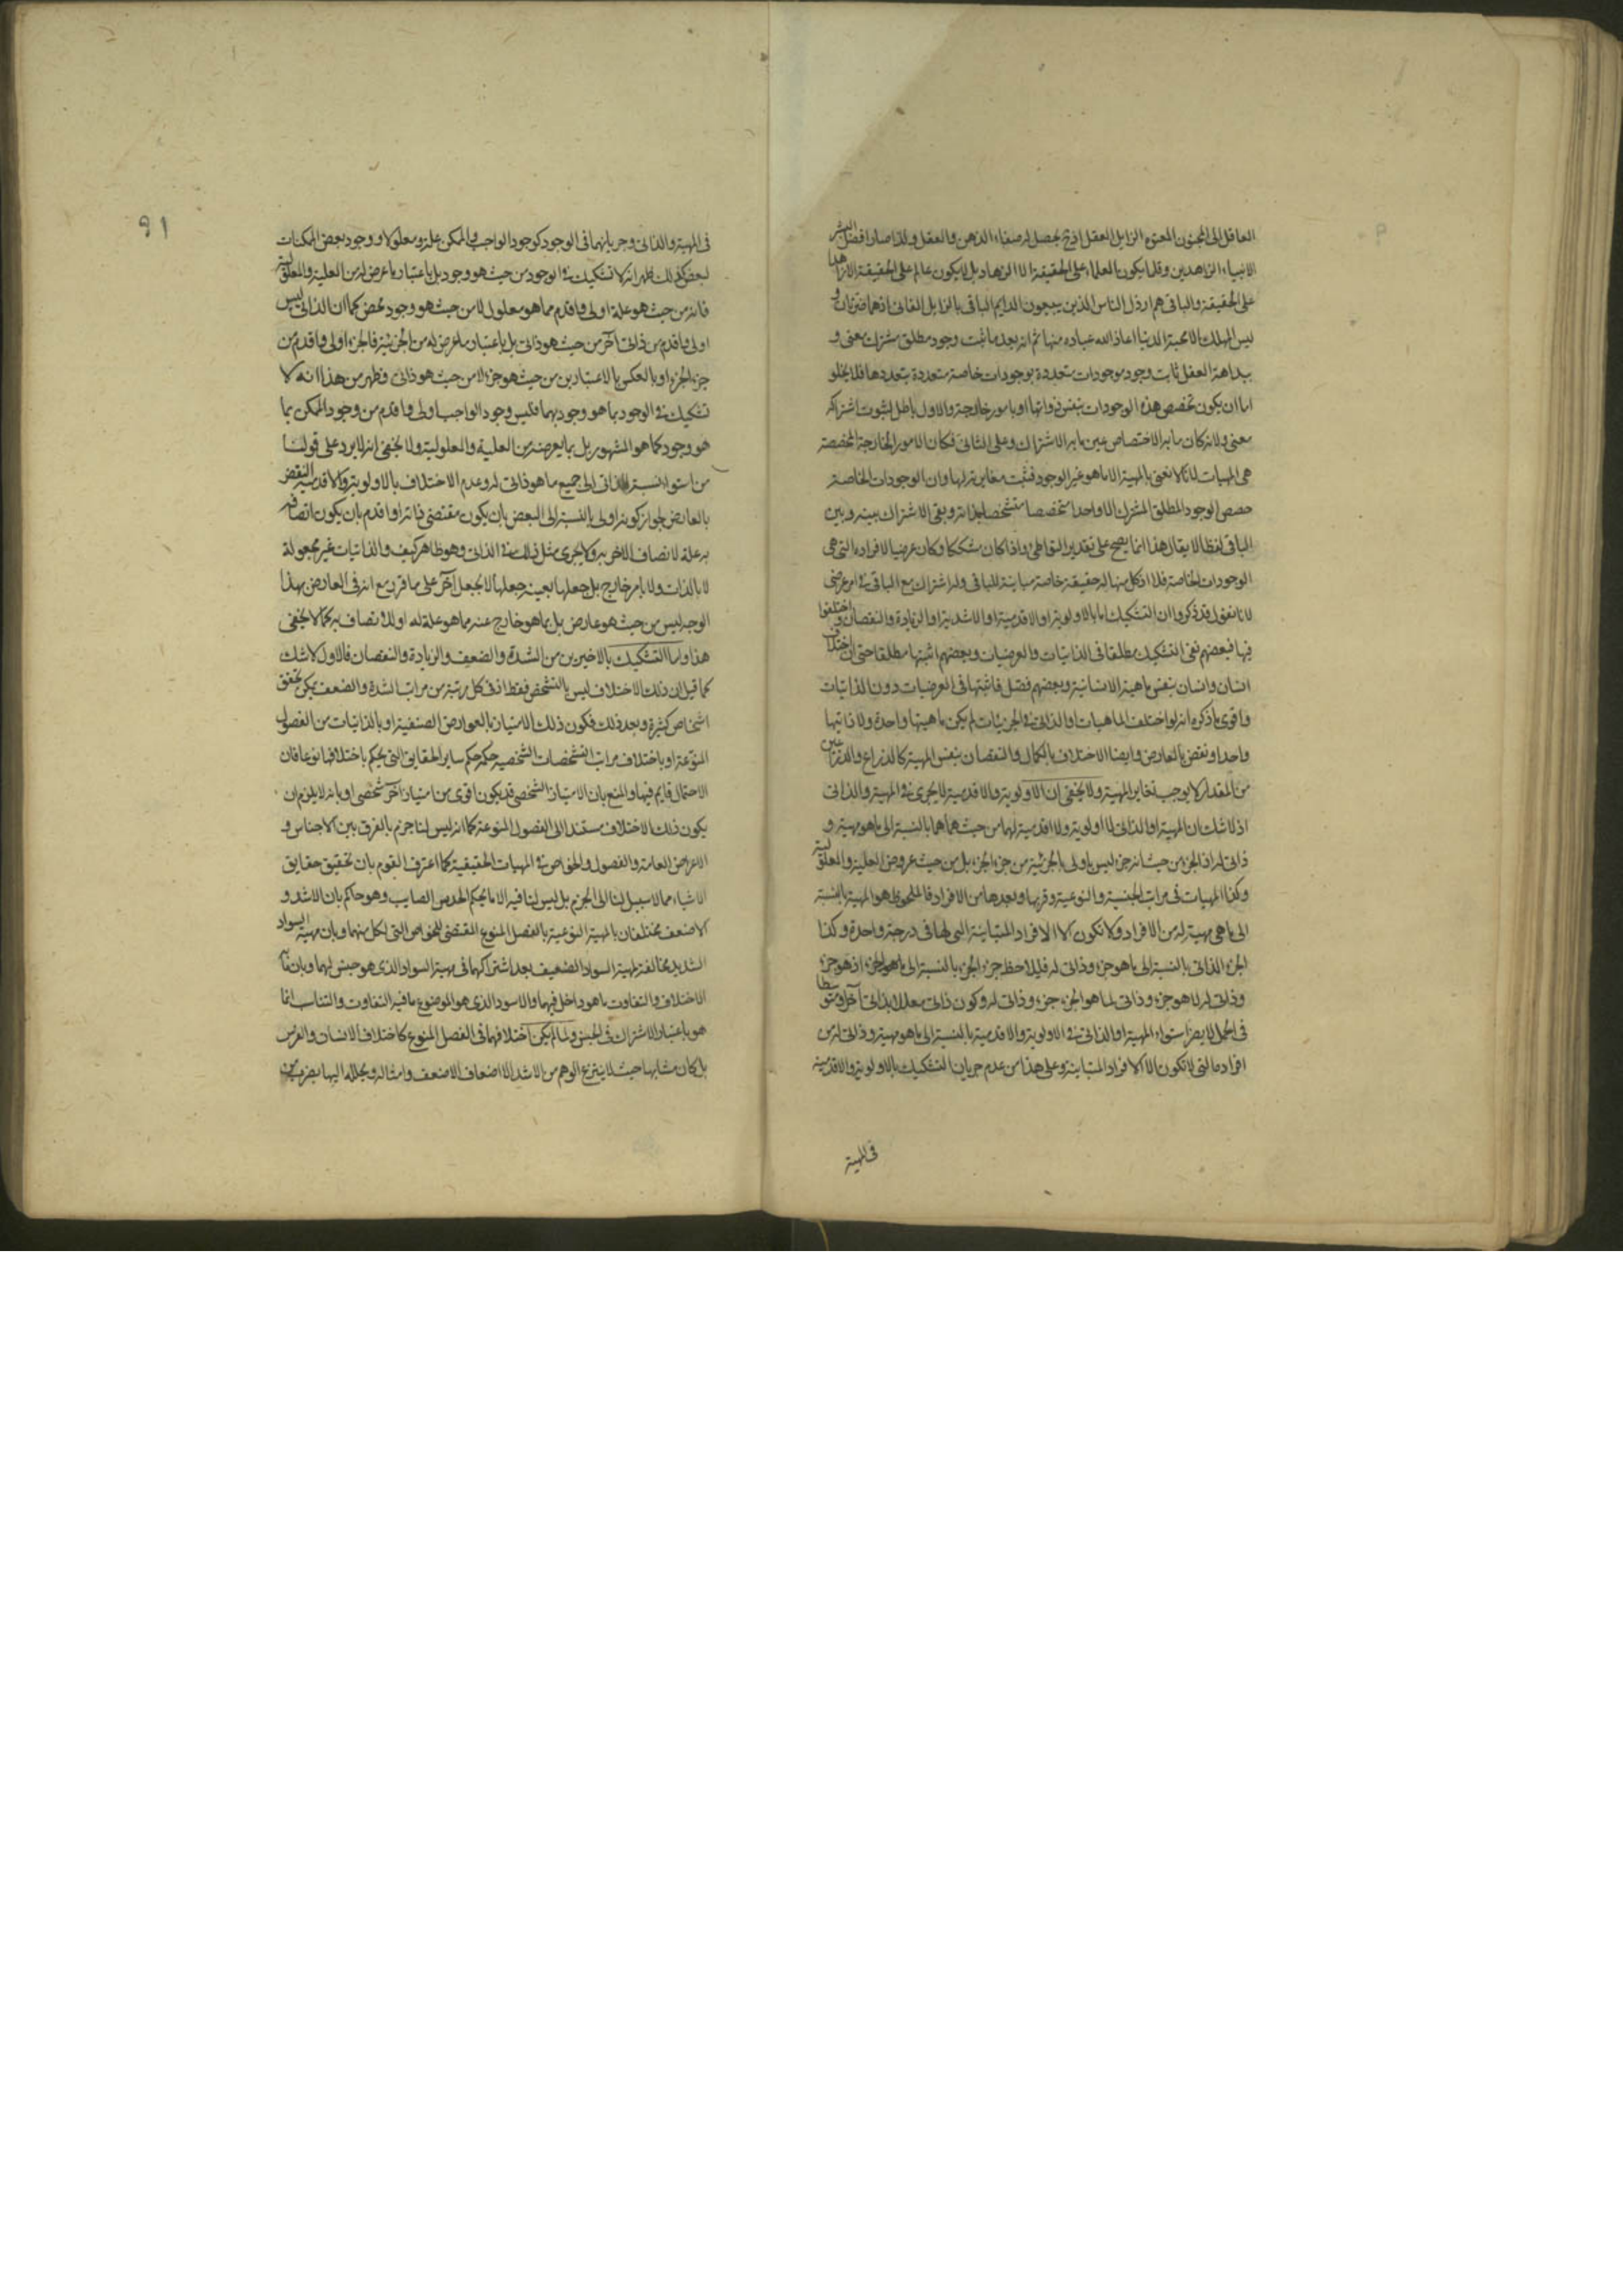 العاقل الى المجنون المعتوه الزايل العقل اذ ح يحصل له صفاء الذهن والعقل ولذا صار افضل البشر
الانبياء الزاهدين وقلما يكون بالعلماء على الحقيقة الا الزهاد بل لا يكون عالم على الحقيقة الا زاهدا
على الحقيقة والباقى هم ارذل الناس الذين يبيعون الدايم الباقى بالزايل الفانى اذ هما ضرتان و
ليس المهلك الا محبة الدنيا اعاذ الله عباده منها ثم انه بعد ما ثبت وجود مطلق مشترك معنى و
بداهة العقل ثابت وجود موجودات متعددة بوجودات خاصة متعددة بتعددها فلا يخلو
اما ان يكون تخصص هذه الوجودات بنفس ذواتها او بامور خارجة والاول باطل لثبوت اشتراكه
معنى ولانه كان ما به الاختصاص عين ما به الاشتراك وعلى الثانى فكان الامور الخارجة المخصصة
هى المهيات لانا لا نعنى بالمهية الا ما هو غير الوجود فثبت مغايرته لها وان الوجودات الخاصة
حصص الوجود المطلق المشترك الا واحدا متخصصا متشخصا بذاته وبقى الاشتراك بينه وبين
الباقى لفظا لا يقال هذا انما يصح على تقدير التواطى واذا كان مشككا وكان عرضيا لافراده التى هى
الوجودات الخاصة فلا اذ كل منها له حقيقة خاصة مباينة للباقى وله اشتراك مع الباقى فى امر عرضى
لانا نقول قد ذكروا ان التشكيك اما بالاولوية او الاقدمية او الاشدية او الزيادة والنقصان واختلفوا
فيها فبعضهم نفى التشكيك مطلقا فى الذاتيات والعرضيات وبعضهم اثبتها مطلقا حتى ان اختلاف
انسان وانسان بنفس ماهية الانسانية وبعضهم فصل فاثبتها فى العرضيات دون الذاتيات
واقوى ما ذكره انه لو اختلف الماهيات والذاتى فى الجزئيات لم يكن ماهيتها واحدة ولا ذاتيها
واحدا ونقض بالعارض وايضا الاختلاف بالكمال والنقصان بنفس المهية كالذراع والذراعين
من المقدار لا يوجب تغاير المهية ولا يخفى ان الاولوية والاقدمية لا يجرى فى المهية والذاتى
اذ لا شك ان المهية او الذاتى لا اولوية ولا اقدمية لهما من حيث هما هما بالنسبة الى ما هو مهية و
ذاتى له اذ الجزء من حيث انه جزء ليس باولى بالجزئية من جزء الجزء بل من حيث عروض العلية والمعلولية
وكذا المهيات فى مراتب الجنسية والنوعية وقربها وبعدها من الافراد فالملحوظ هو المهية بالنسبة
الى ما هى مهية له من الافراد ولا تكون الا الافراد المتباينة التى لها فى درجة واحدة وكذا
الجزء الذاتى بالنسبة الى ما هو جزء وذاتى له فليلاحظ جزء الجزء بالنسبة الى ما هو الجزء اذ هو جزء
وذاتى له لا ما هو جزء وذاتى لما هو الجزء جزء وذاتى له وكون ذاتى معللا بذاتى آخر ومتوسطا
فى الحمل لا يضر استواء المهية او الذاتى فى الاولوية والاقدمية بالنسبة الى ما هو مهية وذاتى له من
افراده التى لا تكون الا الافراد المتباينة وعلى هذا من عدم جريان التشكيك بالاولوية والاقدمية
فى المهية
91
فى المهية والذاتى وجريانهما فى الوجود كوجود الواجب والممكن علة ومعلولا ووجود بعض الممكنات
لبعض كذلك ظهر انه لا تشكيك فى الوجود من حيث هو وجود بل باعتبار ما عرض له من العلية والمعلولية
فانه من حيث هو علة اولى واقدم مما هو معلول لا من حيث هو وجود محض كما ان الذاتى ليس
اولى واقدم من ذاتى آخر من حيث هو ذاتى بل باعتبار ما عرض له من الجزئية فالجزء اولى واقدم من
جزء الجزء او بالعكس بالاعتبارين من حيث هو جزء لا من حيث هو ذاتى فظهر من هذا انه لا
تشكيك فى الوجود بما هو وجود بهما فليس وجود الواجب اولى واقدم من وجود الممكن بما
هو وجود كما هو المشهور بل بما يعرضه من العلية والمعلولية ولا يخفى انه لا يرد على قولنا
من استواء نسبة الذاتى الى جميع ما هو ذاتى له وعدم الاختلاف بالاولوية والاقدمية النقض
بالعارض لجواز كونه اولى بالنسبة الى البعض بان يكون مقتضى ذاته او اقدم بان يكون اتصافه
به علة لاتصاف الاخر به ولا يجرى مثل ذلك فى الذاتى وهو ظاهر كيف والذاتيات غير مجعولة
لا بالذات ولا بامر خارج بل جعلها بعينه جعلها لا بجعل آخر على ما قرر مع انه فى العارض بهذا
الوجه ليس من حيث هو عارض بل بما هو خارج عنه مما هو علة له او للاتصاف به كما لا يخفى
هذا واما التشكيك بالاخيرين من الشدة والضعف والزيادة والنقصان فالاول لا شك
كما قيل ان ذلك الاختلاف ليس بالتشخص فقط اذ فى كل رتبة من مراتب الشدة والضعف يمكن تحقق
اشخاص كثيرة وبعد ذلك فكون ذلك الامتياز بالعوارض الصنفية او بالذاتيات من الفصول
المنوعة او باختلاف مراتب التشخصات الشخصية حكمه حكم ساير الحقايق التى يحكم باختلافها نوعا فان
الاحتمال قايم فيها والمنع بان الامتياز الشخصى قد يكون اقوى من امتياز آخر شخصى او بانه لا يلزم ان
يكون ذلك الاختلاف مستندا الى الفصول المنوعة كما انه ليس لنا جزم بالفرق بين الاجناس و
الاعراض العامة والفصول والخواص فى المهيات الحقيقية كما اعترف القوم بان تحقيق حقايق
الاشياء مما لا سبيل لنا الى الجزم بل ليس لنا فيه الا ما يحكم الحدس الصايب وهو حاكم بان الاشد و
الاضعف مختلفان بالمهية النوعية بالفصل المنوع المقتضى للخواص التى لكل منهما وبان مهية السواد
الشديد مخالفة لمهية السواد الضعيف بعد اشتراكهما فى مهية السواد الذى هو جنس لهما وبان ما به
الاختلاف والتفاوت ما هو داخل فيهما والاسود الذى هو الموضوع ما فيه التفاوت والتناسب انما
هو باعتبار الاشتراك فى الجنس ولما لم يكن اختلافهما فى الفصل المنوع كاختلاف الانسان والفرس
بل كان مشابها حيث لا ينتزع الوهم من الاشد الا اضعاف الاضعف وامثاله ويحلله اليها بضرب من